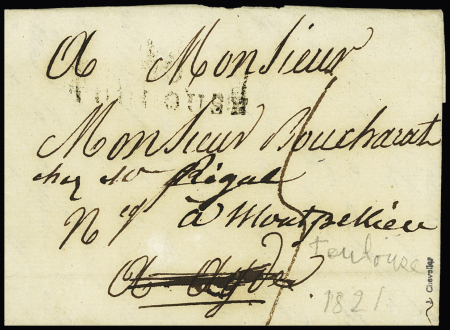 A Monsieur
TOULOUSE
Monsieur Boucharat
chez Mr Rigal
Nt à Montpellier
A Agde
Toulouse
1821
Chevalier